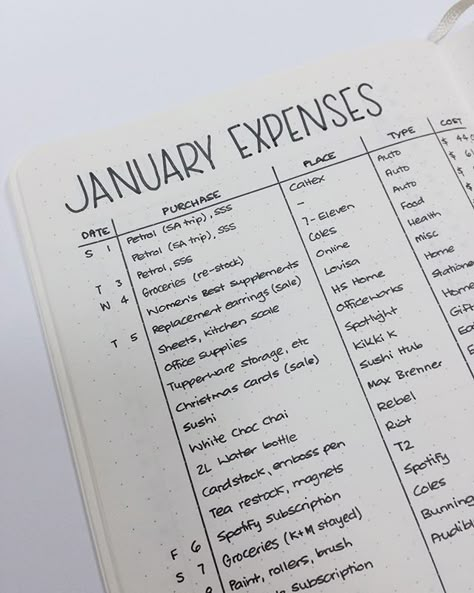 JANUARY EXPENSES
DATE PURCHASE PLACE TYPE COST
S 1 Petrol (SA trip), SSS Caltex Auto $ 44
Petrol (SA trip), SSS – Auto $ 6
Petrol, SSS 7-Eleven Auto $
T 3 Groceries (re-stock) Coles Food
W 4 Women's Best supplements Online Health
Replacement earrings (sale) Lovisa misc
T 5 Sheets, kitchen scale HS Home Home
Office supplies Officeworks Statione
Tupperware storage, etc Spotlight Home
Christmas cards (sale) Kikki K Gift
Sushi Sushi Hub Ea
White Choc Chai Max Brenner E
2L Water bottle Rebel
Cardstock, emboss pen Riot
Tea restock, magnets T2
F 6 Spotify subscription Spotify
S 7 Groceries (K+M stayed) Coles
Paint, rollers, brush Bunning
subscription Audibl